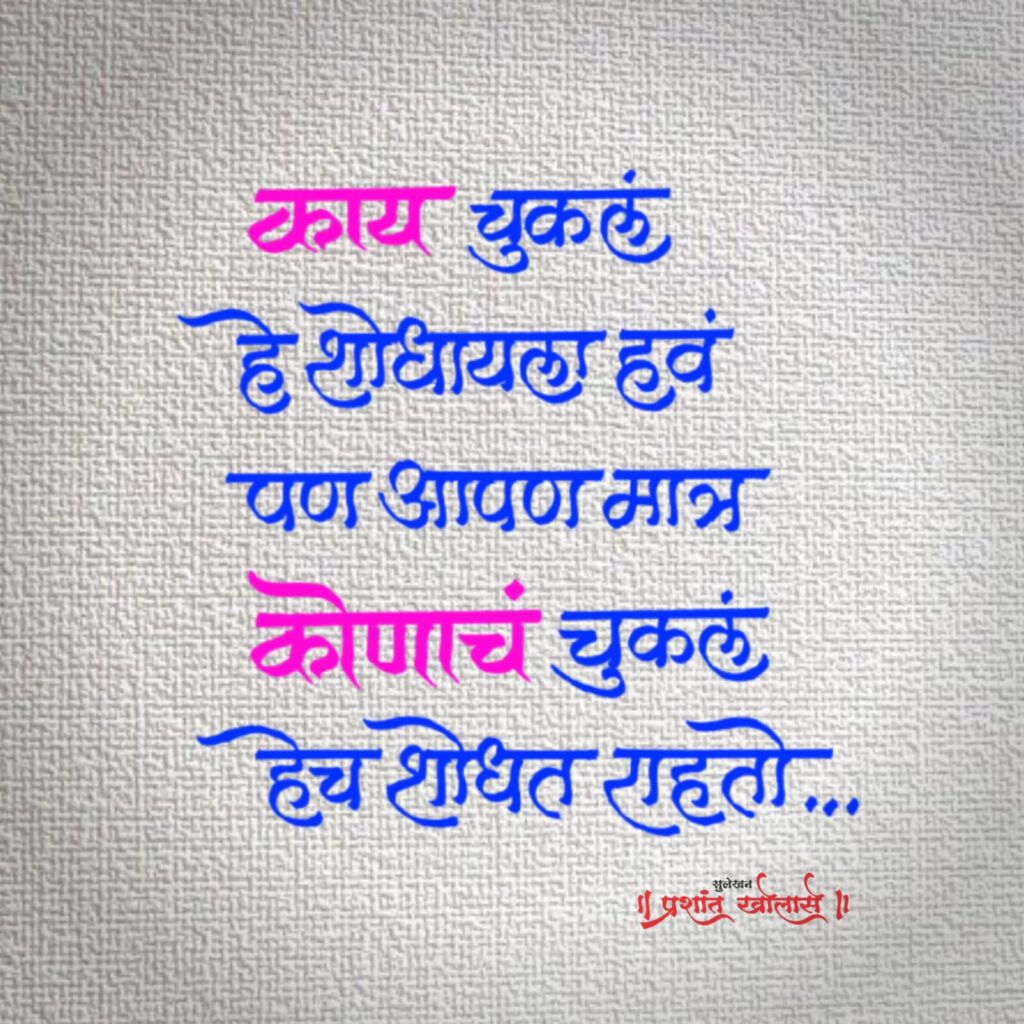 काय चुकलं
हे शोधायला हवं
पण आपण मात्र
कोणाचं चुकलं
हेच शोधत राहतो...
सुलेखन
॥ प्रशांत खोलासे ॥